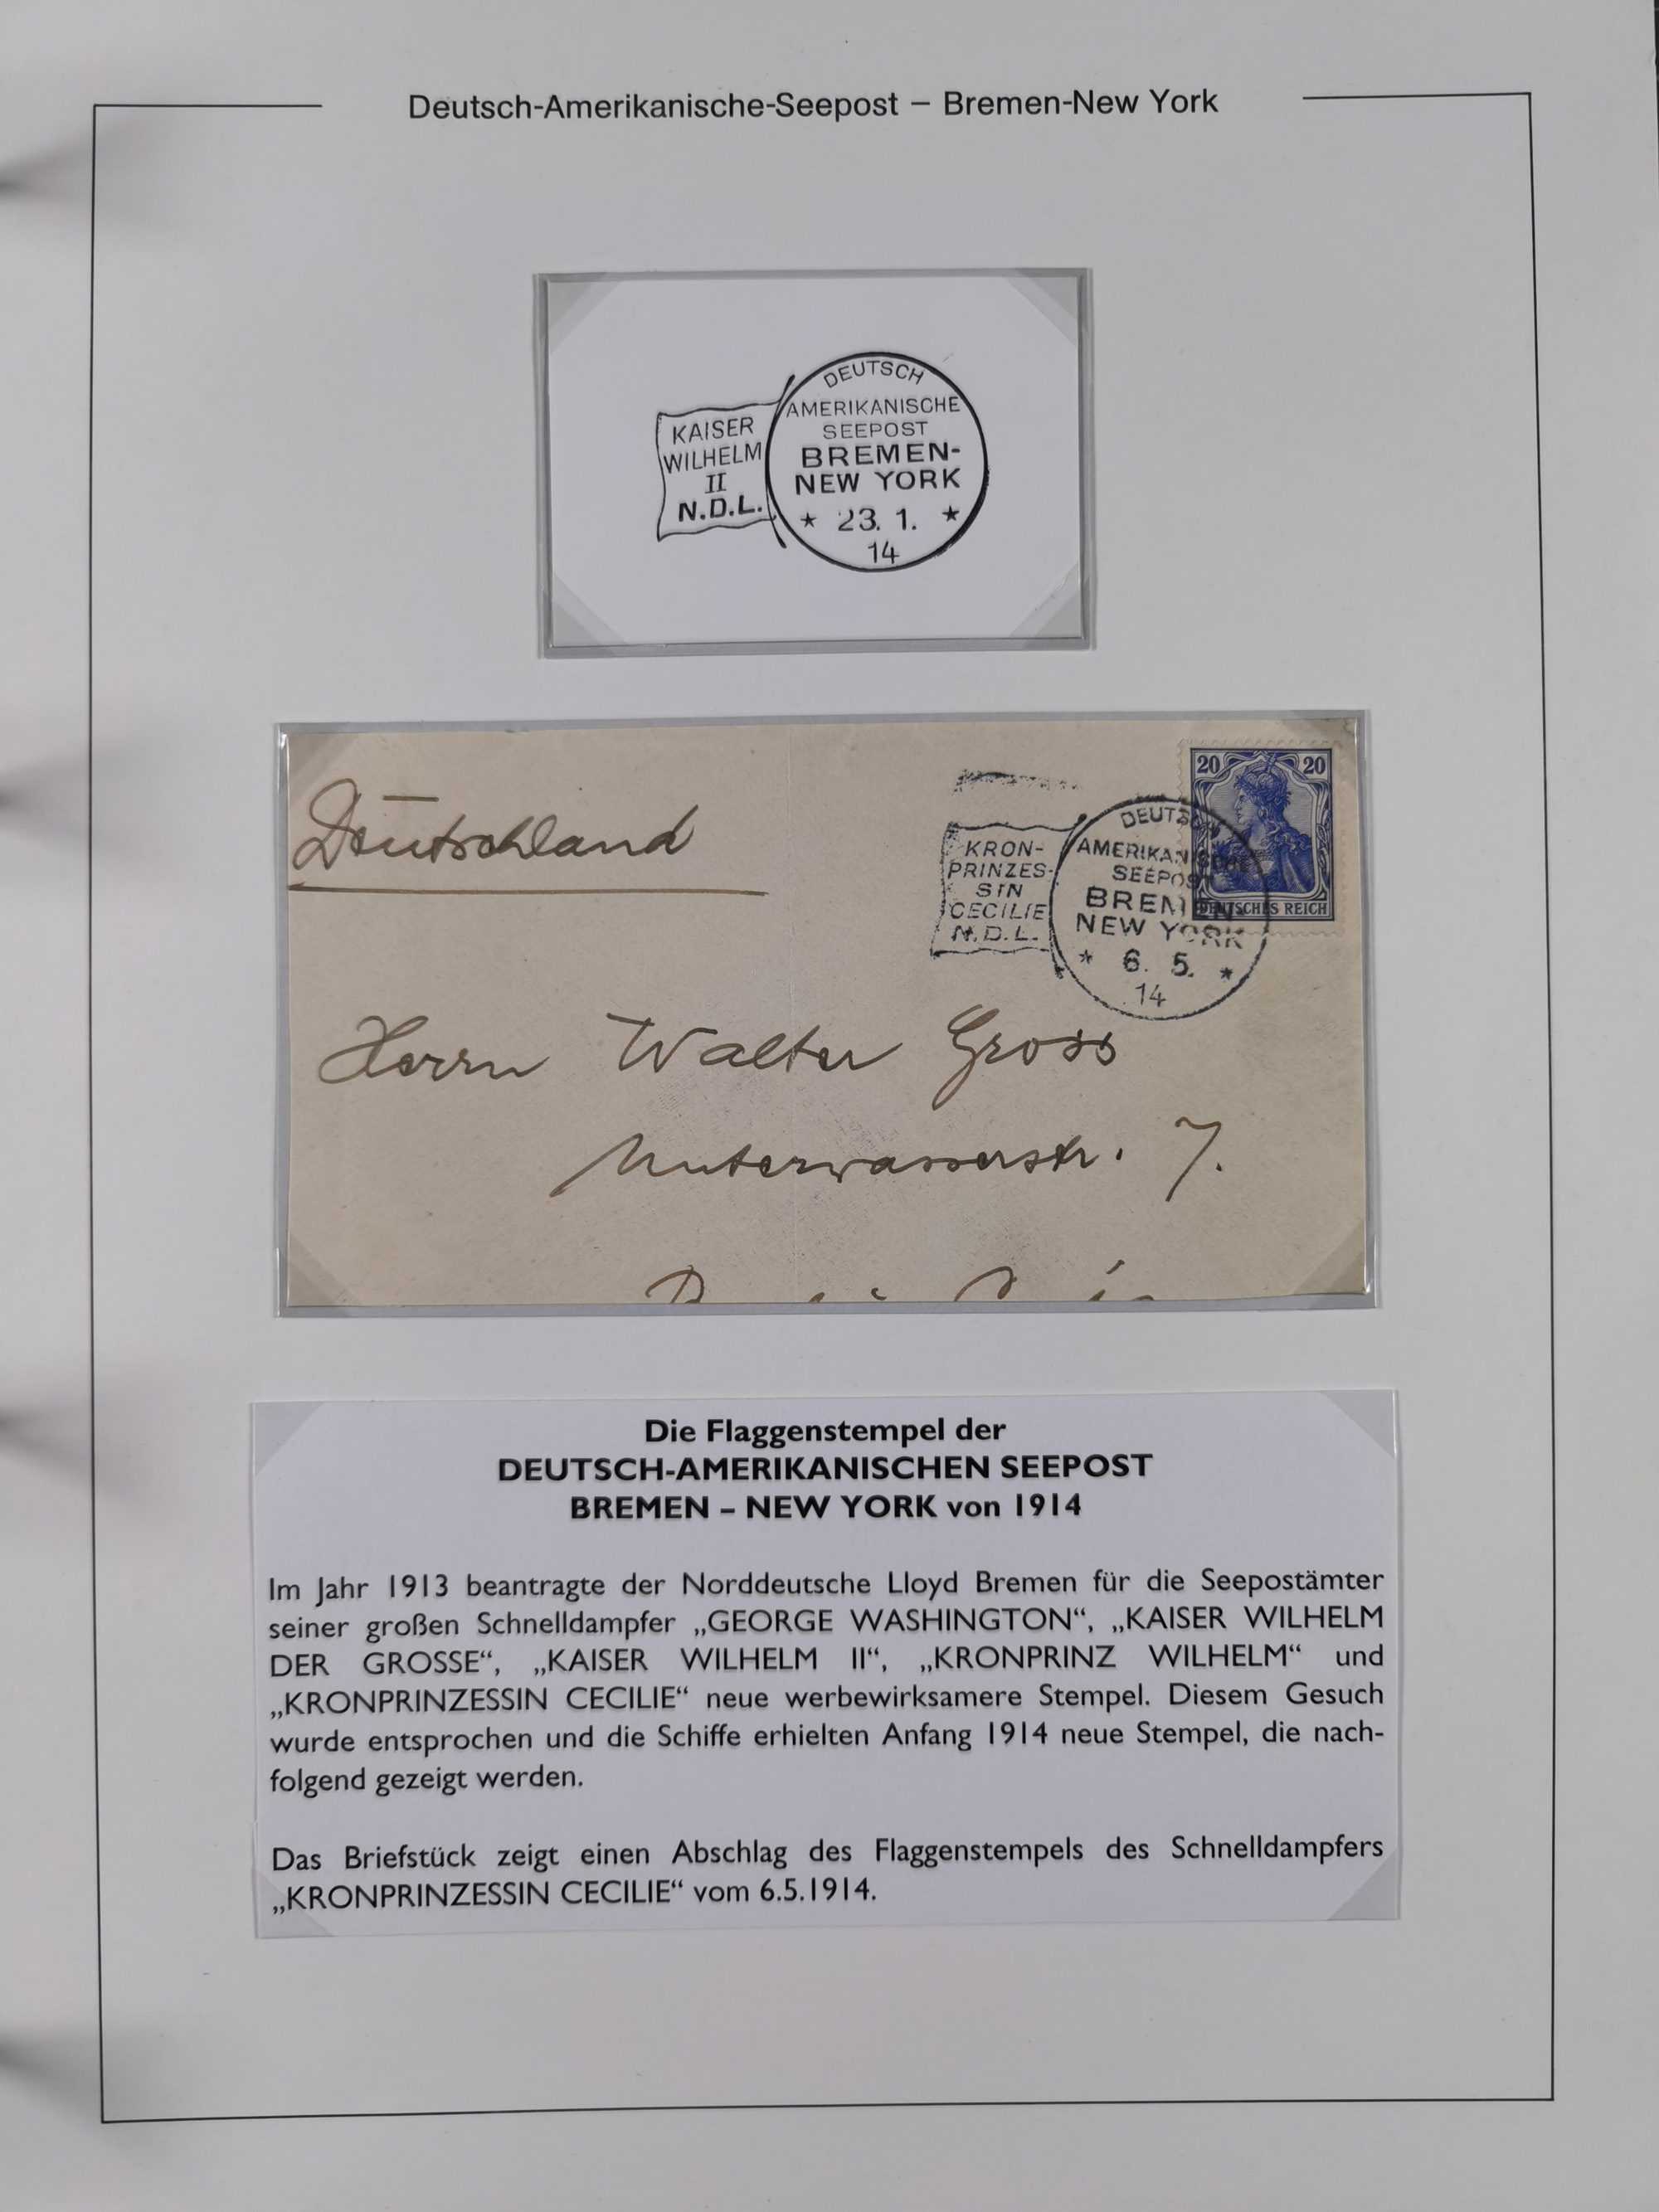 Deutsch-Amerikanische-Seepost – Bremen-New York
KAISER
WILHELM
II
N.D.L.
DEUTSCH
AMERIKANISCHE
SEEPOST
BREMEN-
NEW YORK
* 23. 1. *
14
Deutschland
20 20
DEUTSCHES REICH
KRON-
PRINZES-
SIN
CECILIE
N.D.L.
DEUTSCH
AMERIKANISCHE
SEEPOST
BREMEN
NEW YORK
* 6. 5. *
14
Herrn Walter Gross
Unterwasserstr. 7.
Die Flaggenstempel der
DEUTSCH-AMERIKANISCHEN SEEPOST
BREMEN – NEW YORK von 1914
Im Jahr 1913 beantragte der Norddeutsche Lloyd Bremen für die Seepostämter
seiner großen Schnelldampfer „GEORGE WASHINGTON“, „KAISER WILHELM
DER GROSSE“, „KAISER WILHELM II“, „KRONPRINZ WILHELM“ und
„KRONPRINZESSIN CECILIE“ neue werbewirksamere Stempel. Diesem Gesuch
wurde entsprochen und die Schiffe erhielten Anfang 1914 neue Stempel, die nach-
folgend gezeigt werden.
Das Briefstück zeigt einen Abschlag des Flaggenstempels des Schnelldampfers
„KRONPRINZESSIN CECILIE“ vom 6.5.1914.